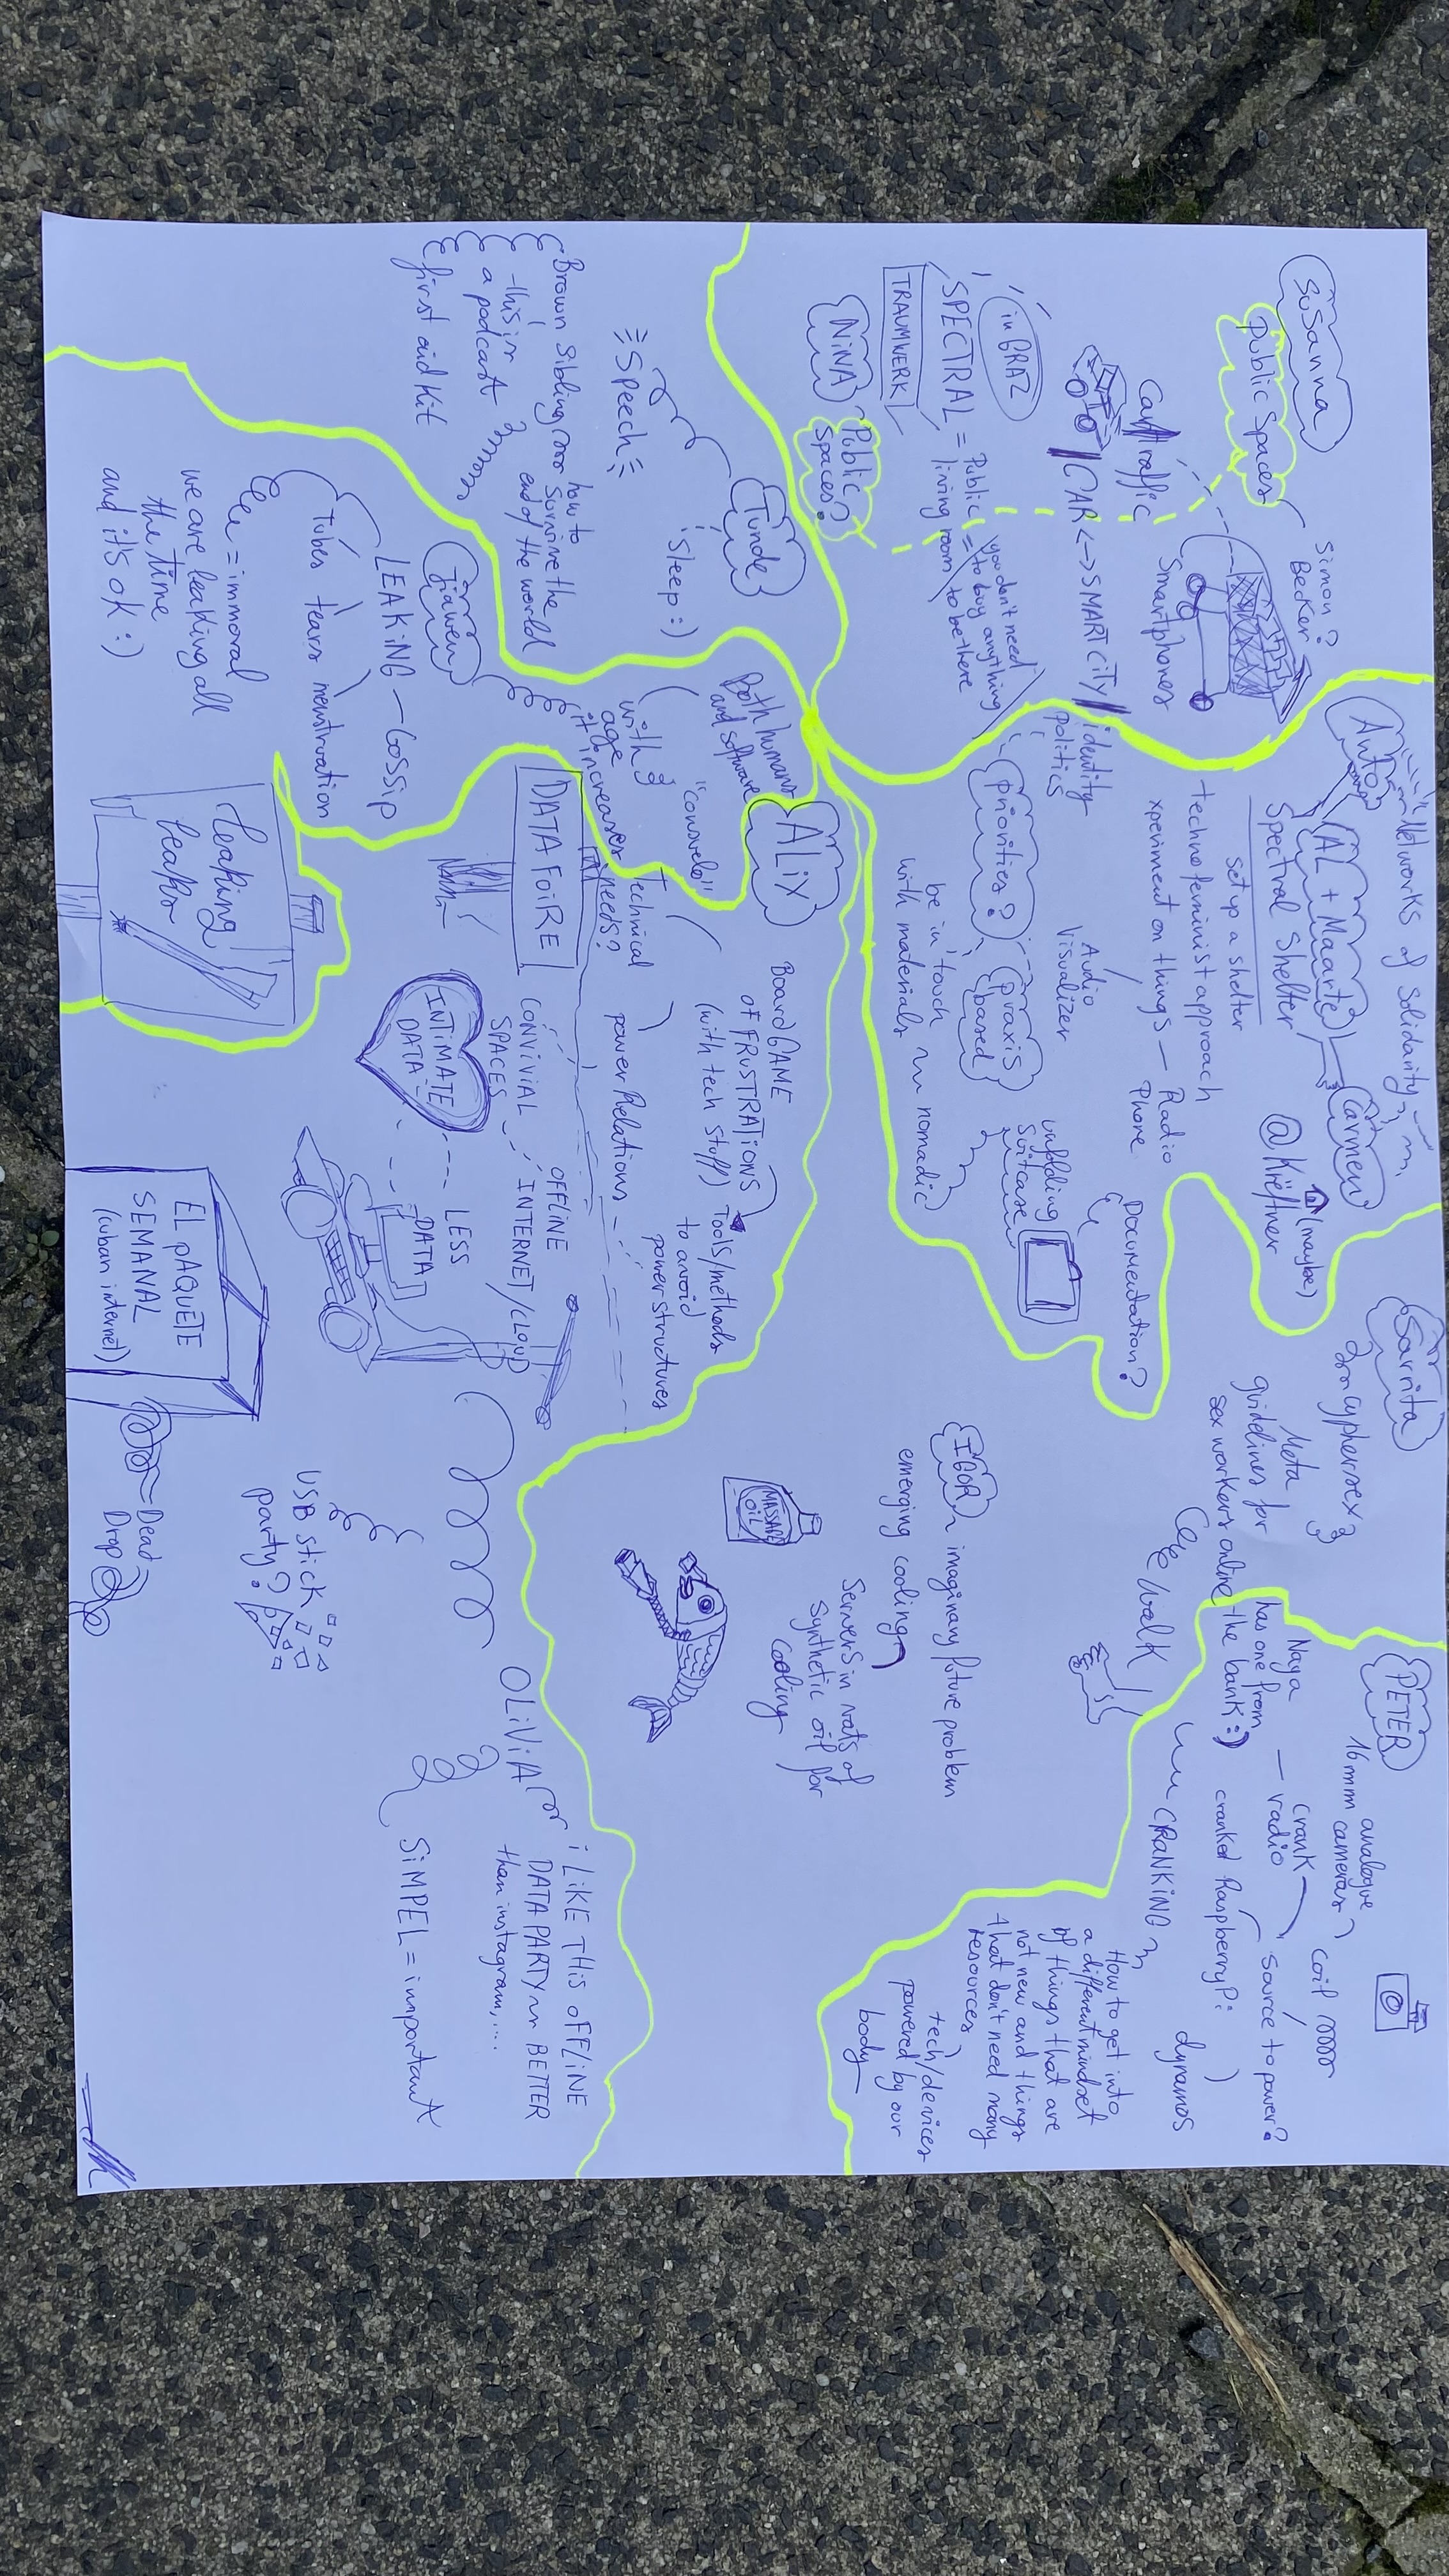 SuSanna
Public Spaces
Simon?
Becker
Car traffic
Smartphones
CAR <-> SMART CITY
in GRAZ
SPECTRAL = Public
living room
= you don't need
to buy anything
to be there
TRAUMWERK
NiNA
Public
Spaces?
Tunde
Sleep :)
Speech
Brown Sibling
how to
Survive the
end of the world
- this is
a podcast
first aid Kit
Jiawen
LEAKiNG - GOSSip
Tubes tears menstruation
= immoral
we are leaking all
the time
and it's ok :)
leaking
leaks
Networks of Solidarity
Anto
AL + Maarte
Carmen
Spectral Shelter
@ Kriëftner
(maybe)
Set up a shelter
techno feminist approach
xperiment on things - Radio
Phone
identity
politics
Audio
Visualizer
Documentation?
priorities?
praxis
based
unfolding
Suitcase
be in touch
with materials
nomadic
ALiX
both humans
and software
"consuelo"
with
age
it increases
Technical
needs?
Board GAME
OF FRuSTRATiONS
(with tech stuff)
Tools/methods
to avoid
power structures
power Relations
DATA FOiRE
CONViViAL
SPACES
OFFLiNE
INTERNET/CLOUD
INTiMATE
DATA
LESS
DATA
EL pAQUETE
SEMANAL
(cuban internet)
Dead
Drop
USB stick
party?
OLiViA
i LiKE THiS OFFLiNE
DATA PARTY BETTER
than instagram,...
SiMPEL = important
Sarrita
Cyphersex
Meta
guidelines for
sex workers online
Cable Walk
IGOR
imaginary future problem
emerging cooling
Servers in vats of
synthetic oil for
cooling
MASSAGE
OiL
PETER
analogue
16mm cameras
coil
Naya
has one from
the bank :)
- crank
radio
Source to power?
cranked RaspberryPi
CRANKiNG
dynamos
How to get into
a different mindset
of things that are
not new and things
that don't need many
resources
tech/devices
powered by our
body